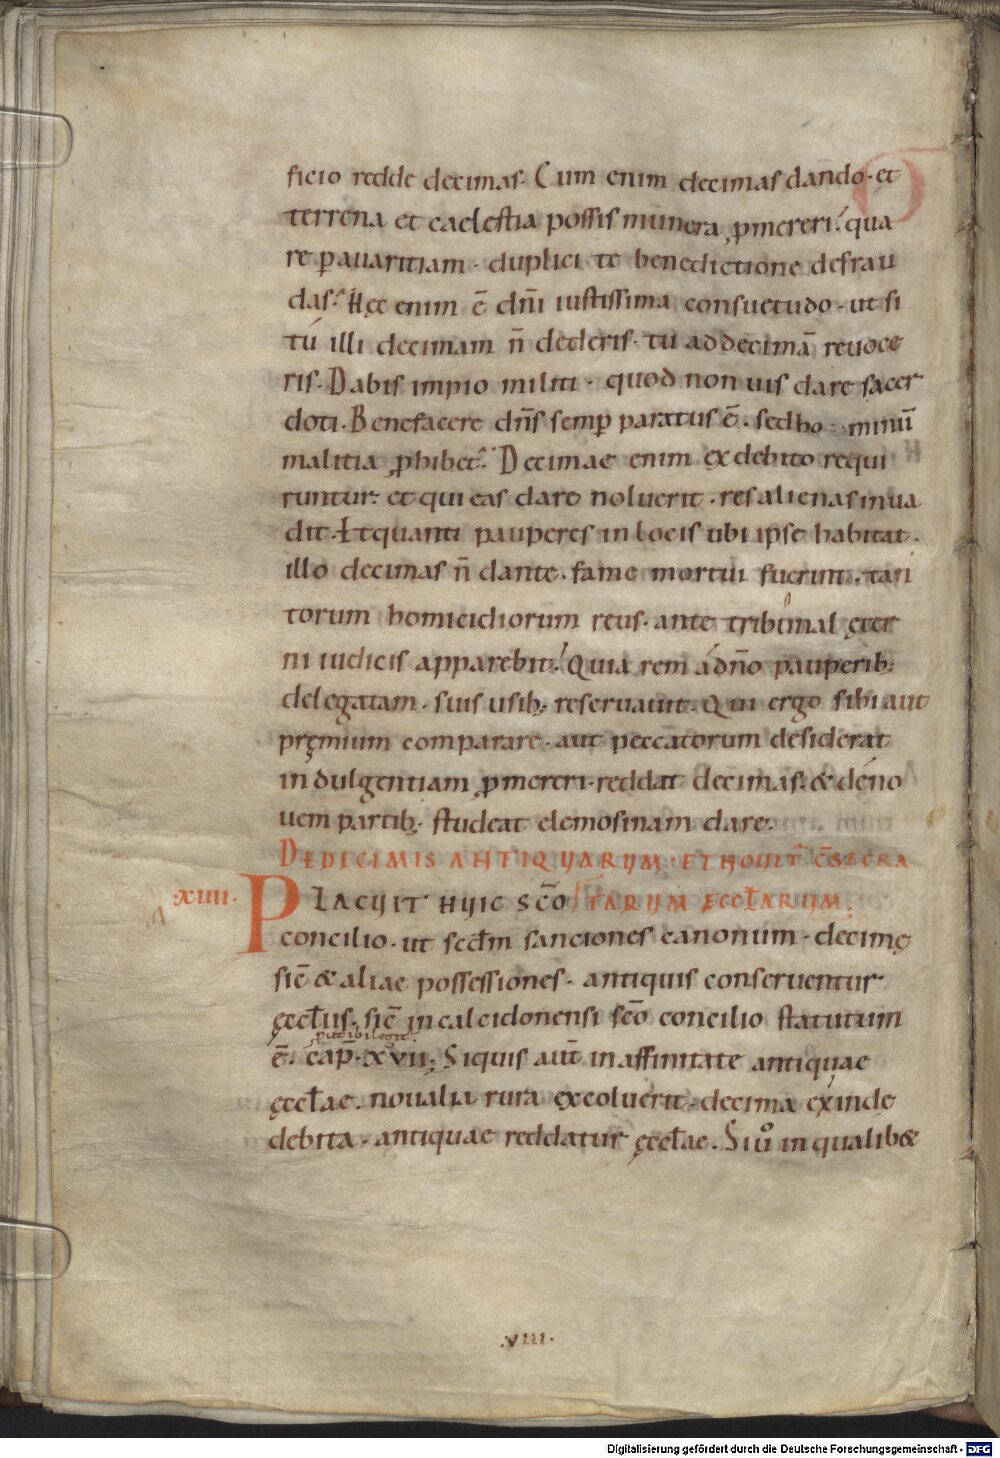 ficio redde decimas. Cum enim decimas dando. et
terrena et caelestia possis munera ꝓmereri. qua
re ꝑ avaritiam. duplici te benedictione defrau
das. Hęc enim ē dn̄i iustissima consuetudo. ut si
tú illi decimam n̄ dederis. tu ad decimā reuoce
ris. Dabis impio militi. quod non uis dare sacer
doti. Benefacere dn̄s semꝑ paratus ē. sed ho minū
malitia ꝓhibet. Decimae enim ex debito requi
runtur. et qui eas dare noluerit. res alienas inua
dit. Et quanti pauperes in locis ubi ipse habitat.
illo decimas n̄ dante. fame mortui fuerint. tan
torum homicidiorum reus. ante tribunal ęter
ni iudicis apparebit. Quia rem á dn̄o pauperib;
delegatam. suis usib; reseruauit. Qui ergo sibi aut
pręmium comparare. aut peccatorum desiderat
indulgentiam ꝓmereri. reddat decimas. & de no
uem partib; studeat elemosinam dare.
DE DECIMIS ANTIQUARUM. ET NOUIT̄ C̄SECRA
.XIIII. PLACUIT HUIC SC̄O TARUM ECCL̄ARUM.
concilio. ut scd̄m sanciones canonum. decimę
sic̄ & aliae possessiones. antiquis conseruentur
ęccl̄iis. sic̄ in calcidonensi sc̄o concilio statutum
ē. cap̄. xvii; Siquis aut̄ in affinitate antiquae
ęccl̄ae. noualia rura excoluerit. decima exinde
debita. antiquae reddatur ęccl̄ae. Si uo in qualib&
.VIII.
Digitalisierung gefördert durch die Deutsche Forschungsgemeinschaft - DFG